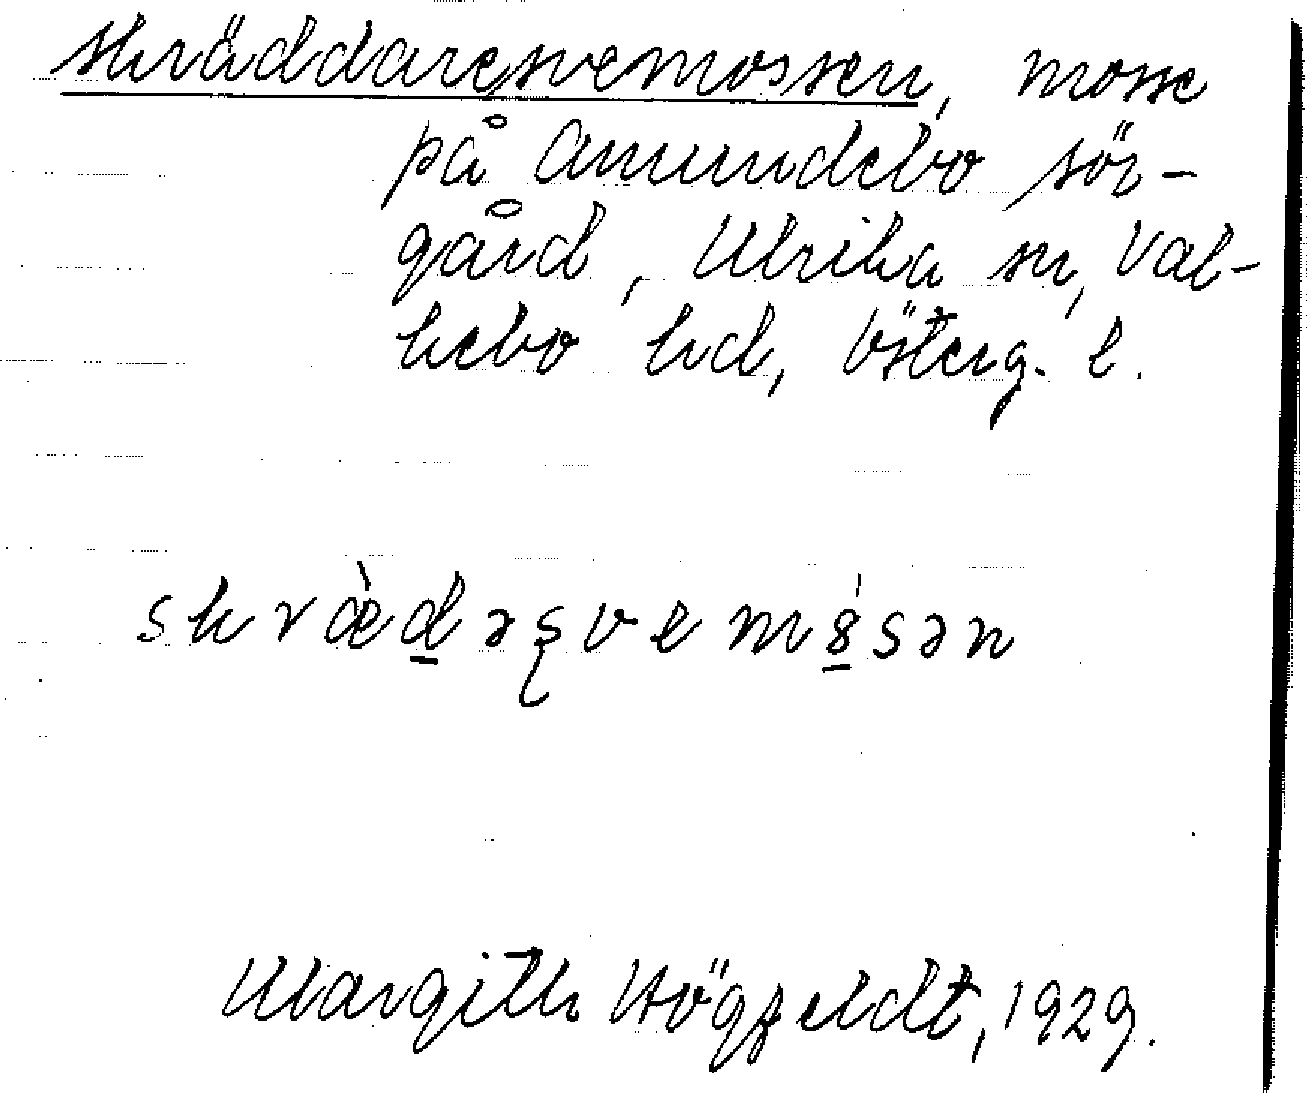 skräddaresvemossen, mosse
på Amundebo sör-
gård, Ulrika sn, Val-
kebo hd, Österg. l.
skræ̀d̲əʂvemó̲sən
Margith Högfeldt, 1929.